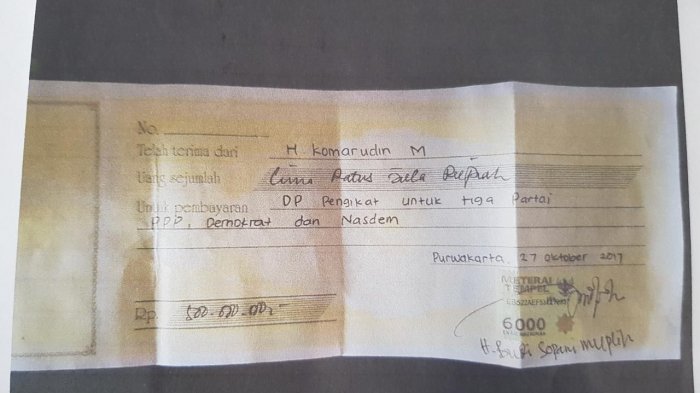 No.
Telah terima dari H Komarudin M
Uang sejumlah Lima Ratus Juta Rupiah
Untuk pembayaran DP Pengikat untuk tiga Partai
PPP, Demokrat dan Nasdem
Purwakarta, 27 Oktober 2017
METERAI
TEMPEL
Rp. 500.000.000,-
6000
H.